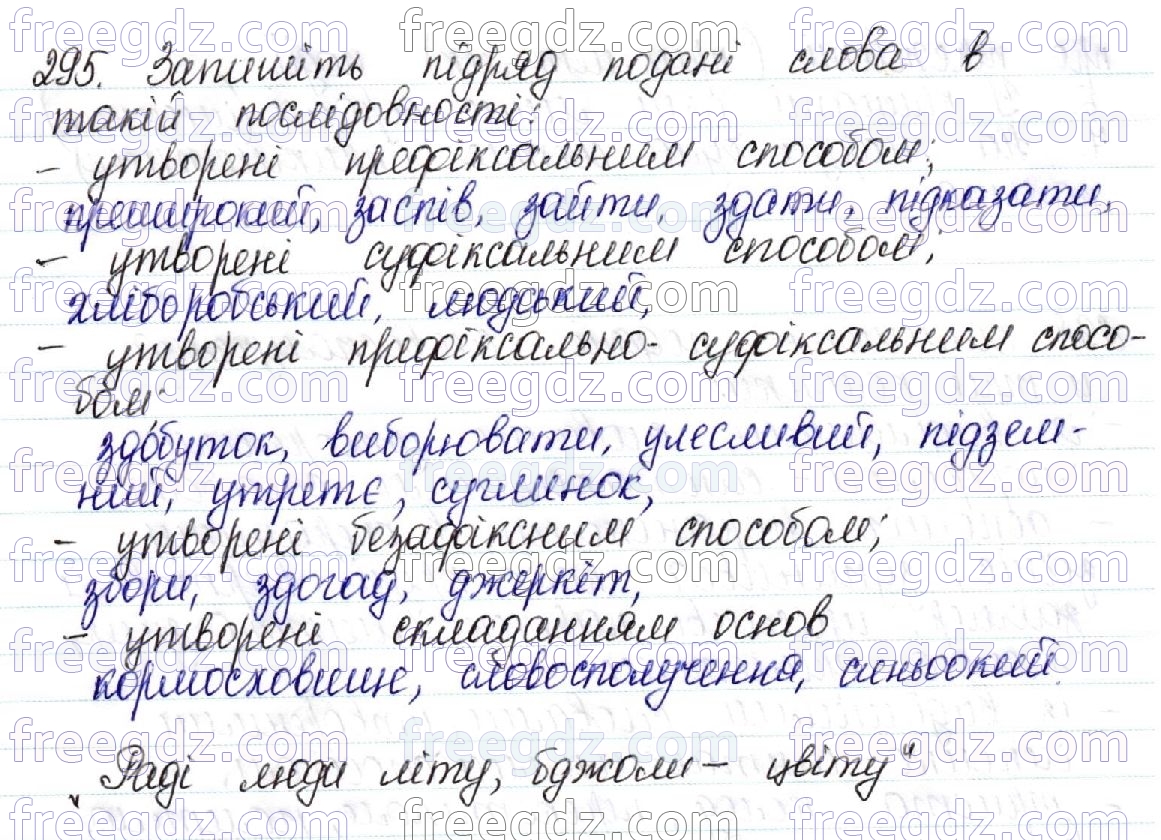 295. Запишіть підряд подані слова в
такій послідовності:
– утворені префіксальним способом;
прешироκий, заспів, зайти, здати, підказати,
– утворені суфіксальним способом;
хліборобський, людський,
– утворені префіксально-суфіксальним спосо-
бом;
здобуток, виборювати, улесливий, підзем-
ний, утретє, суглинок,
– утворені безафіксним способом;
збори, здогад, джеркіт,
– утворені складанням основ
кормосховище, словосполучення, синьоокий.
„Раді люди літу, бджоли – цвіту"
freegdz.com